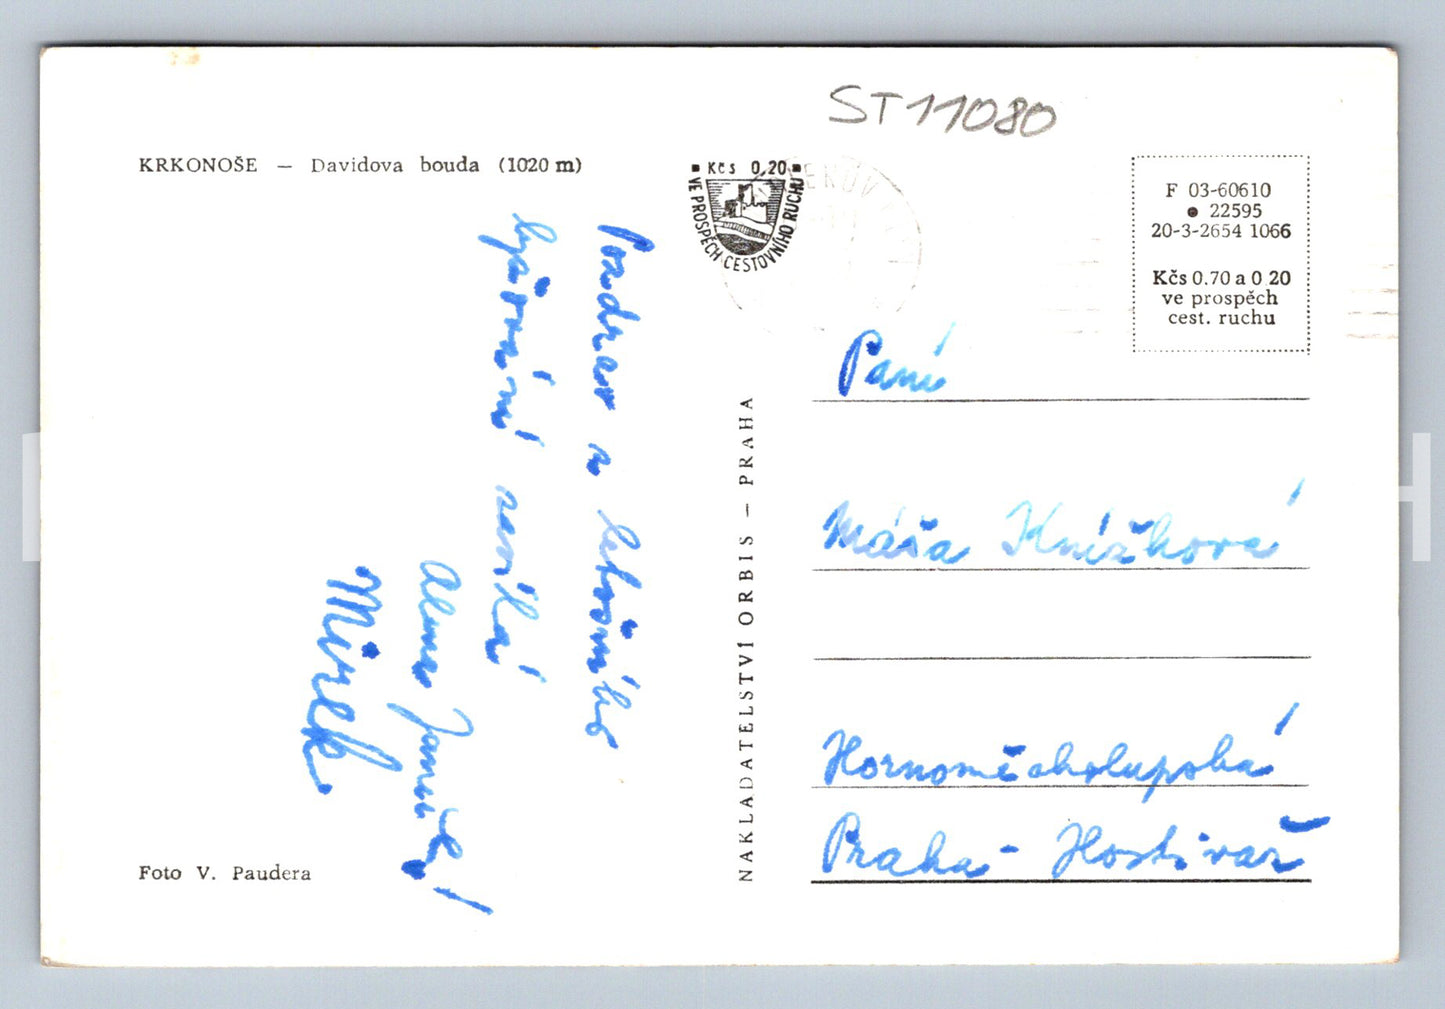 ST11080
KRKONOŠE — Davidova bouda (1020 m)
Kčs 0,20
VE PROSPĚCH CESTOVNÍHO RUCHU
F 03-60610
● 22595
20-3-2654 1066
Kčs 0.70 a 0 20
ve prospěch
cest. ruchu
Pozdrav a letošního
lyžování zasílá
Alena
Mirek
NAKLADATELSTVÍ ORBIS — PRAHA
Paní
Máša Knížková
Hornoměcholupská
Praha - Hostivař
Foto V. Paudera